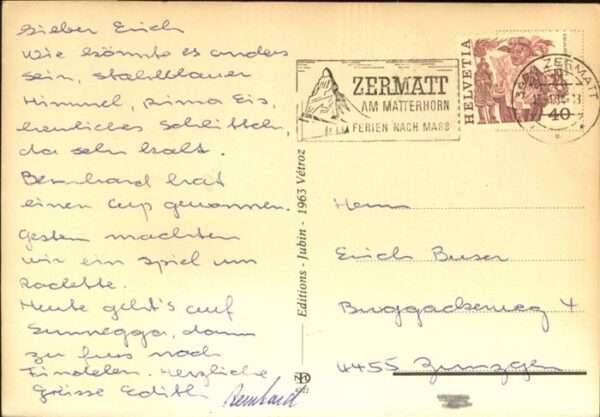 Lieber Erich
Wie könnte es anders
sein, stahlblauer
Himmel, prima Eis,
herrliches Schlitteln,
da sehr kalt.
Bernhard hat
einen Cup gewonnen.
Gestern machten
wir ein Spiel um
Raclette.
Heute geht's auf
Sunnegga, dann
zu fuss nach
Findelen. Herzliche
Grüsse Edith Bernhard
Editions - Jubin - 1963 Vétroz
ZERMATT
AM MATTERHORN
FERIEN NACH MASS
HELVETIA
40
ZERMATT
Herrn
Erich Buser
Buggackerweg 4
4455 Zunzgen